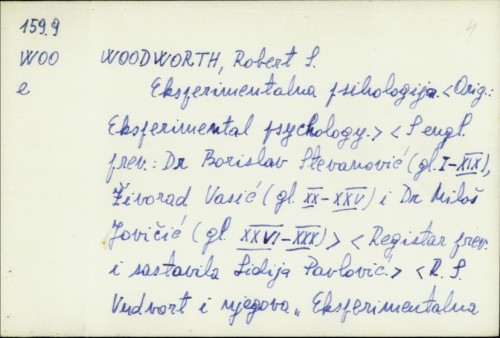 159.9
4
WOO WOODWORTH, Robert S.
e Eksperimentalna psihologija. <Orig.:
Eksperimental psychology.> <S engl.
prev.: Dr Borislav Stevanović (gl. I-XIX),
Živorad Vasić (gl. XX-XXV) i Dr Miloš
Jovičić (gl. XXVI-XXX)> <Registar prev.
i sastavila Lidija Pavlović.> <R. S.
Vudvort i njegova „Eksperimentalna